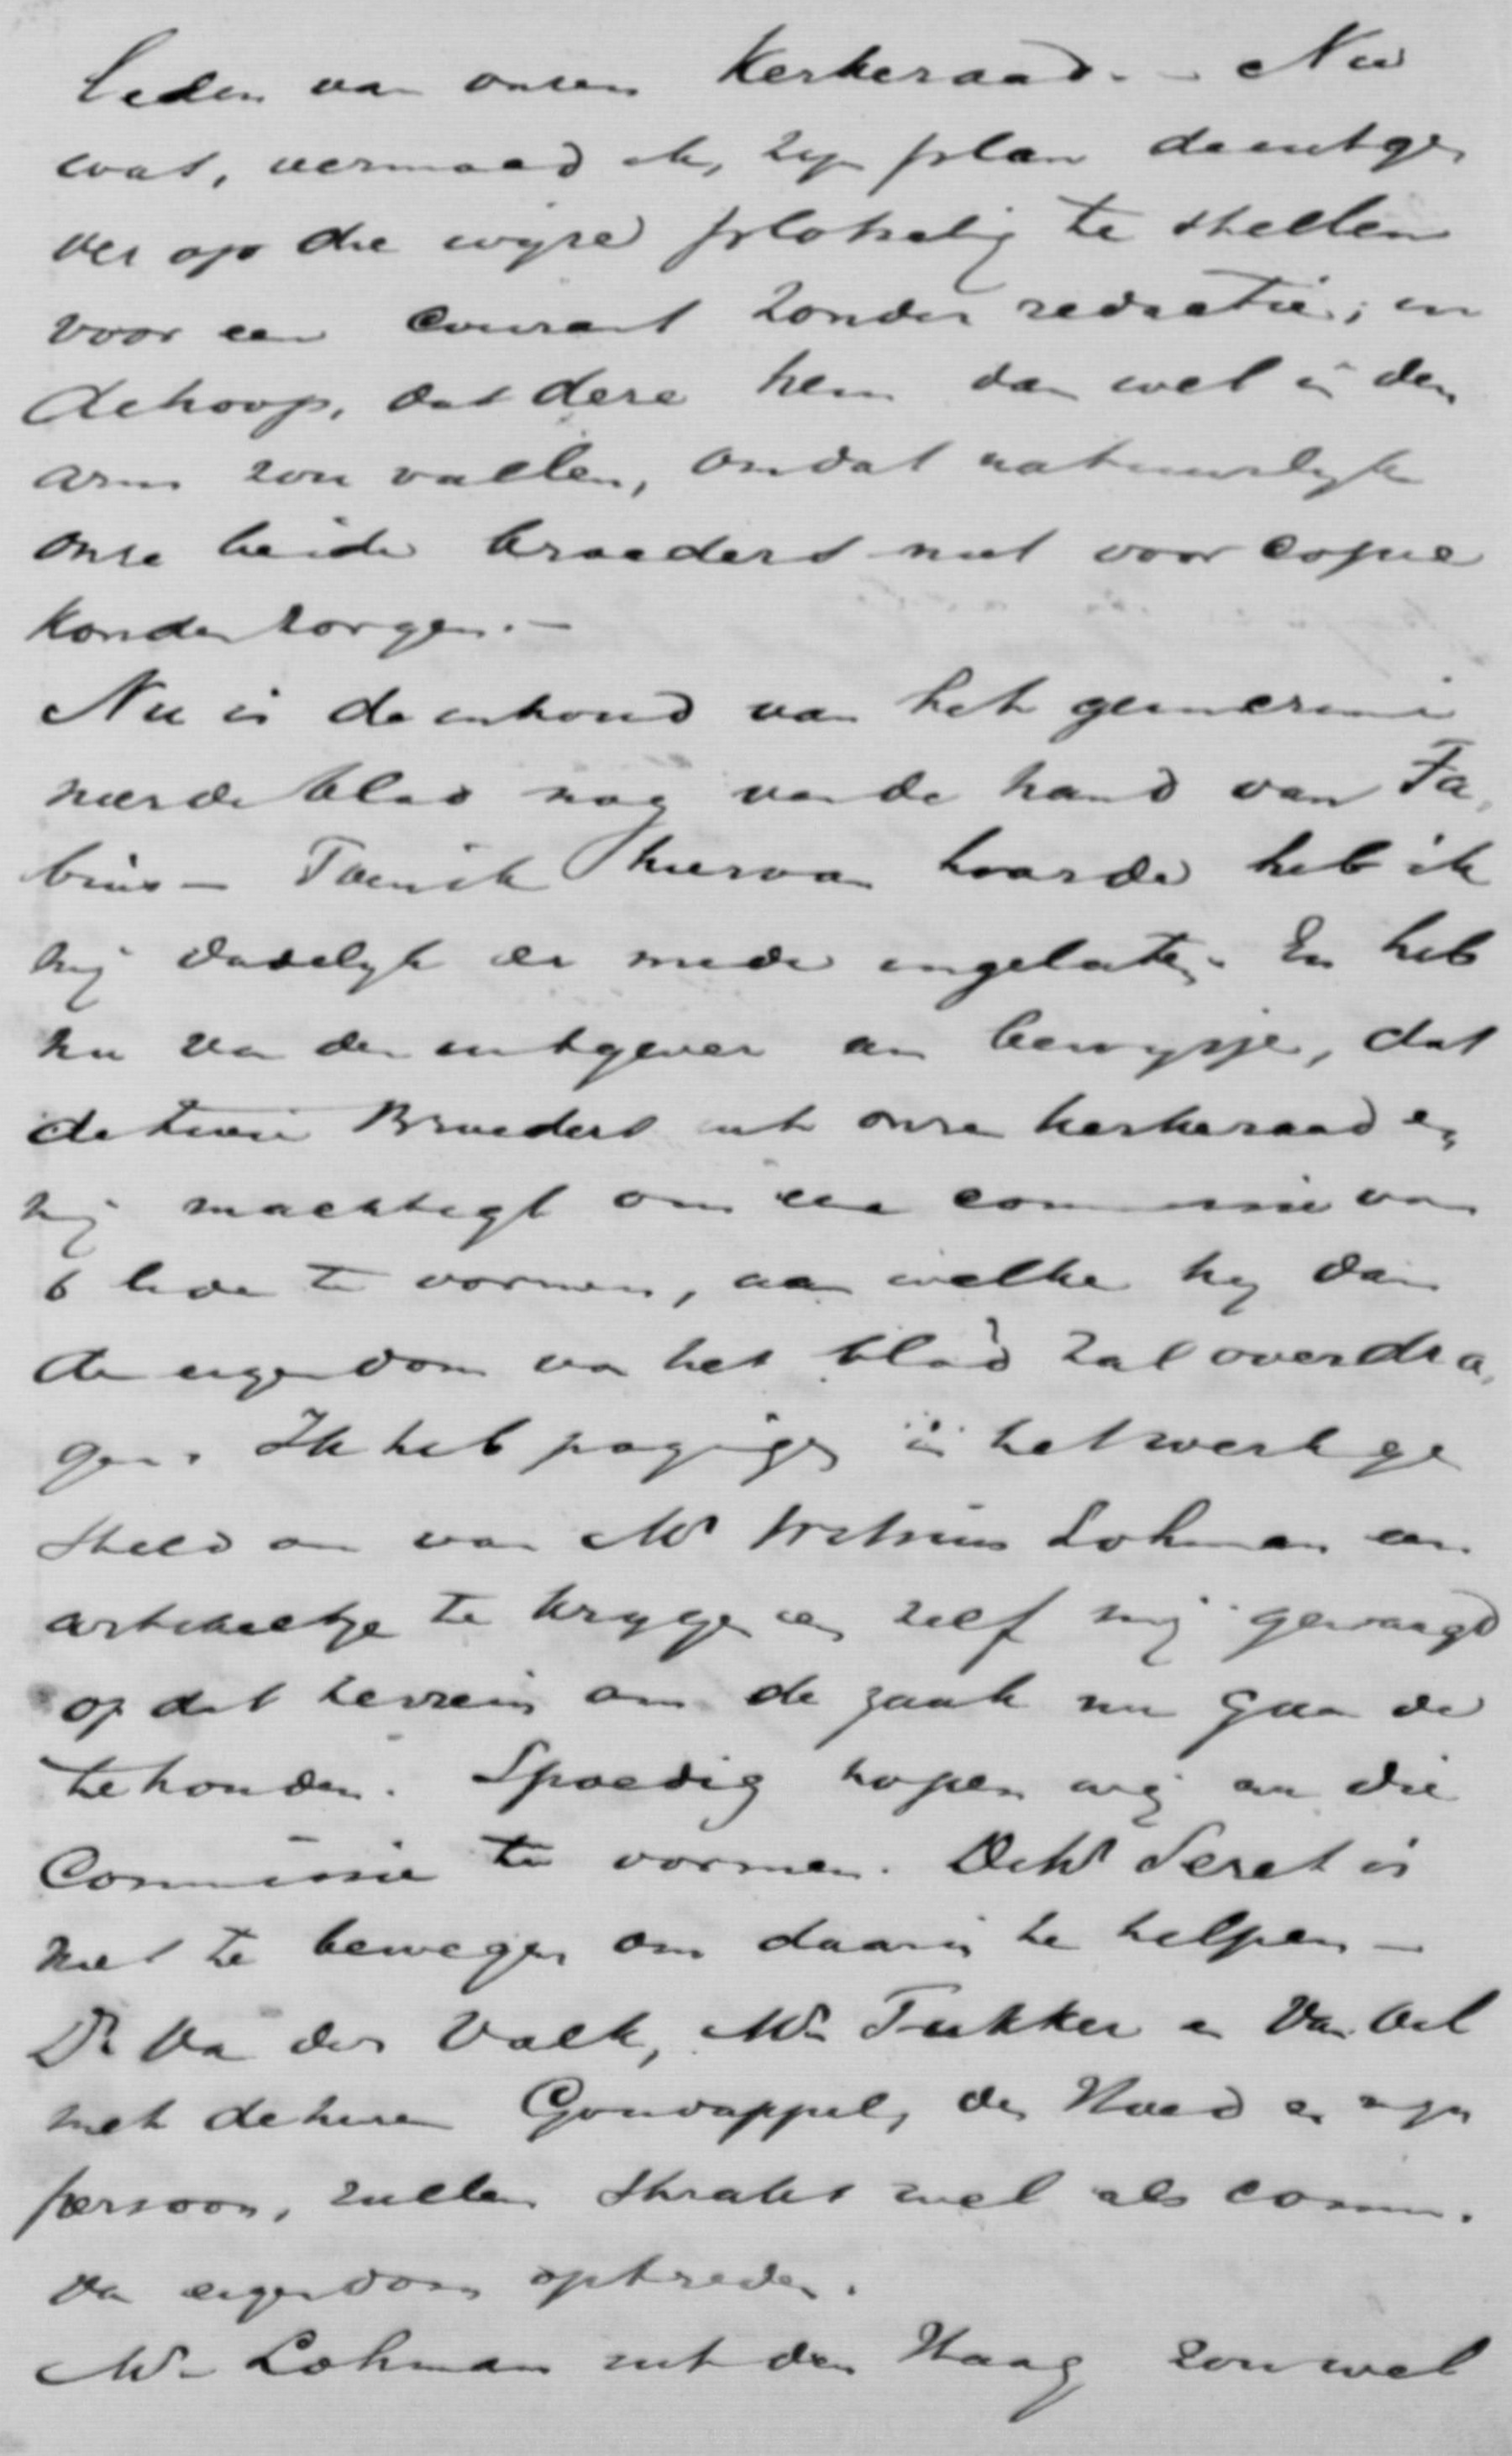 leden van onzen Kerkeraad. - Nu
wat, vermoed ik, zijn plan de uitge
ver op die wijze plotselig te stellen
voor een courant zonder redactie; in
de hoop, dat deze hem dan wel in den
arm zou vallen, omdat natuurlijk
onze beide broeders niet voor copie
konden zorgen. -
Nu is de inhoud van het
blad nog van de hand van Fa
bius - Toen ik hiervan hoorde heb ik
mij dadelijk er mede ingelaten. En heb
nu van den uitgever een bewijsje, dat
de twee Broeders uit onze kerkeraad en
mij machtigt om een commissie van
6 leden te vormen, aan welke hij dan
de eigendom van het blad zal overdra
gen. Ik heb pogingen in het werk ge
steld om van Mr Lohman een
artikeltje te krijgen en zelf mij gewaagd
op dat terrein om de zaak nu gaande
te houden. Spoedig hopen wij nu die
Commissie te vormen. is
niet te bewegen om daarin te helpen -
Dr Van der Valk, Mr Tukker en Van
met de heren Goudappel, den Hoed en mijn
persoon, zullen straks wel als comm.
van eigendom optreden.
Mr Lohman uit den Haag zou wel